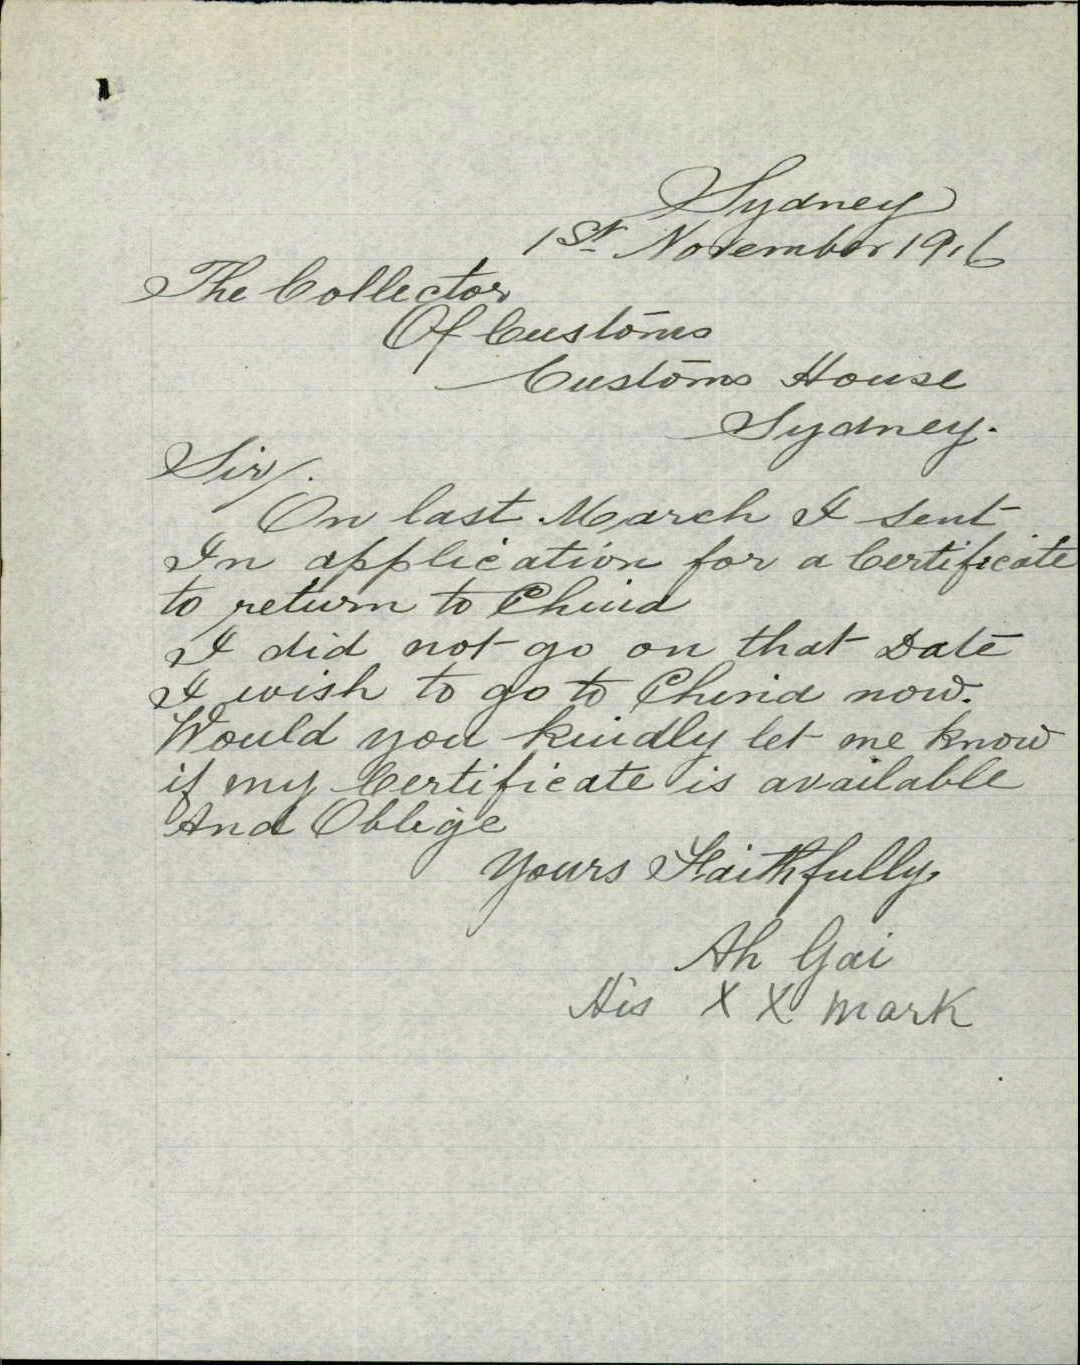 Sydney
1st November 1916
The Collector
Of Customs
Customs House
Sydney.
Sir/.
On last March I sent
In application for a Certificate
to return to China
I did not go on that Date
I wish to go to China now.
Would you kindly let me know
if my Certificate is available
And Oblige
Yours Faithfully,
Ah Gai
His X X mark